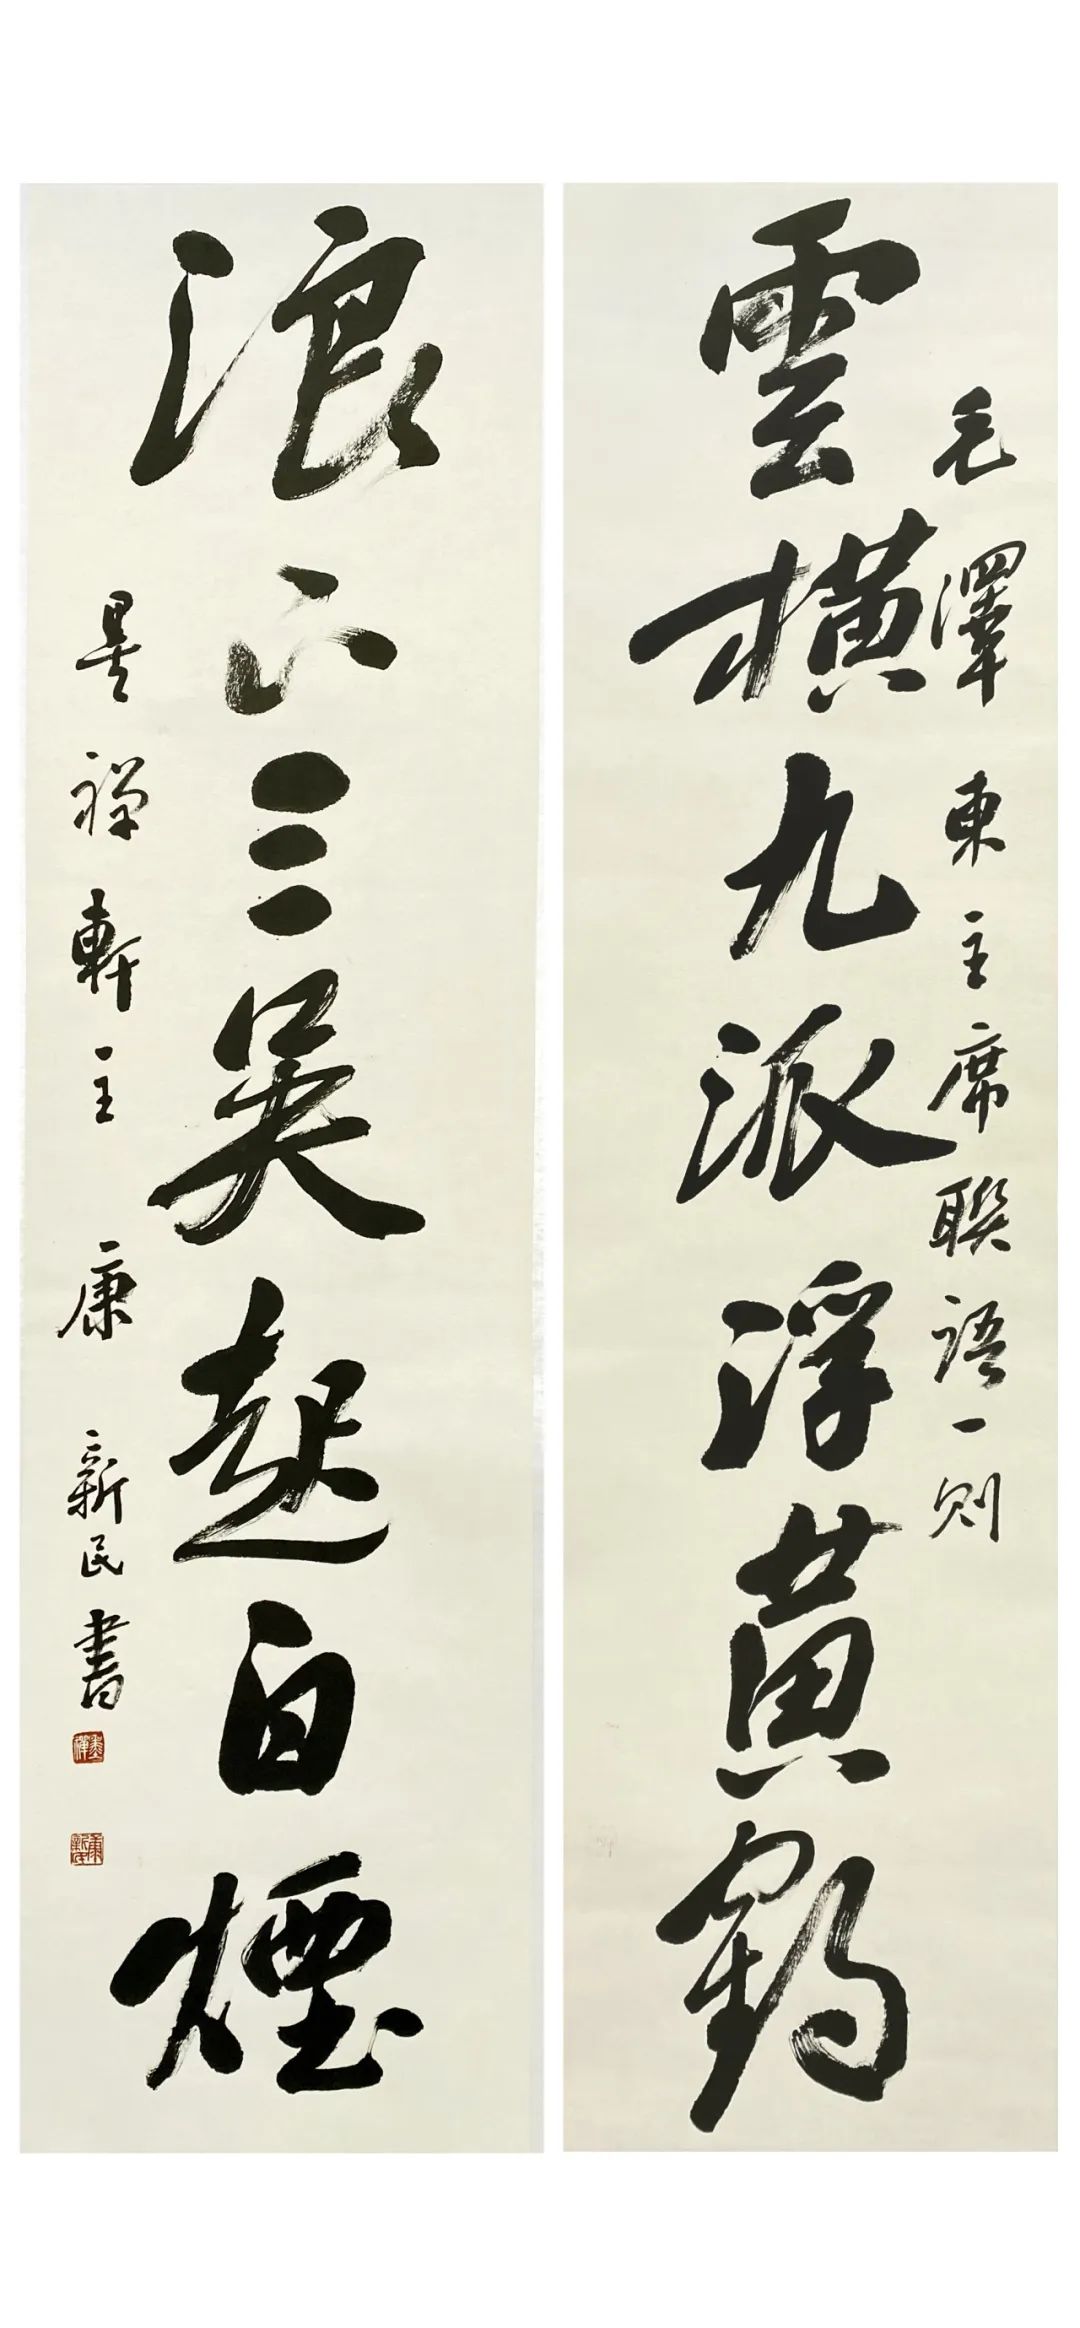 毛澤東主席聯語一則
雲橫九派浮黄鶴
浪下三吴起白煙
禪軒主康新民書